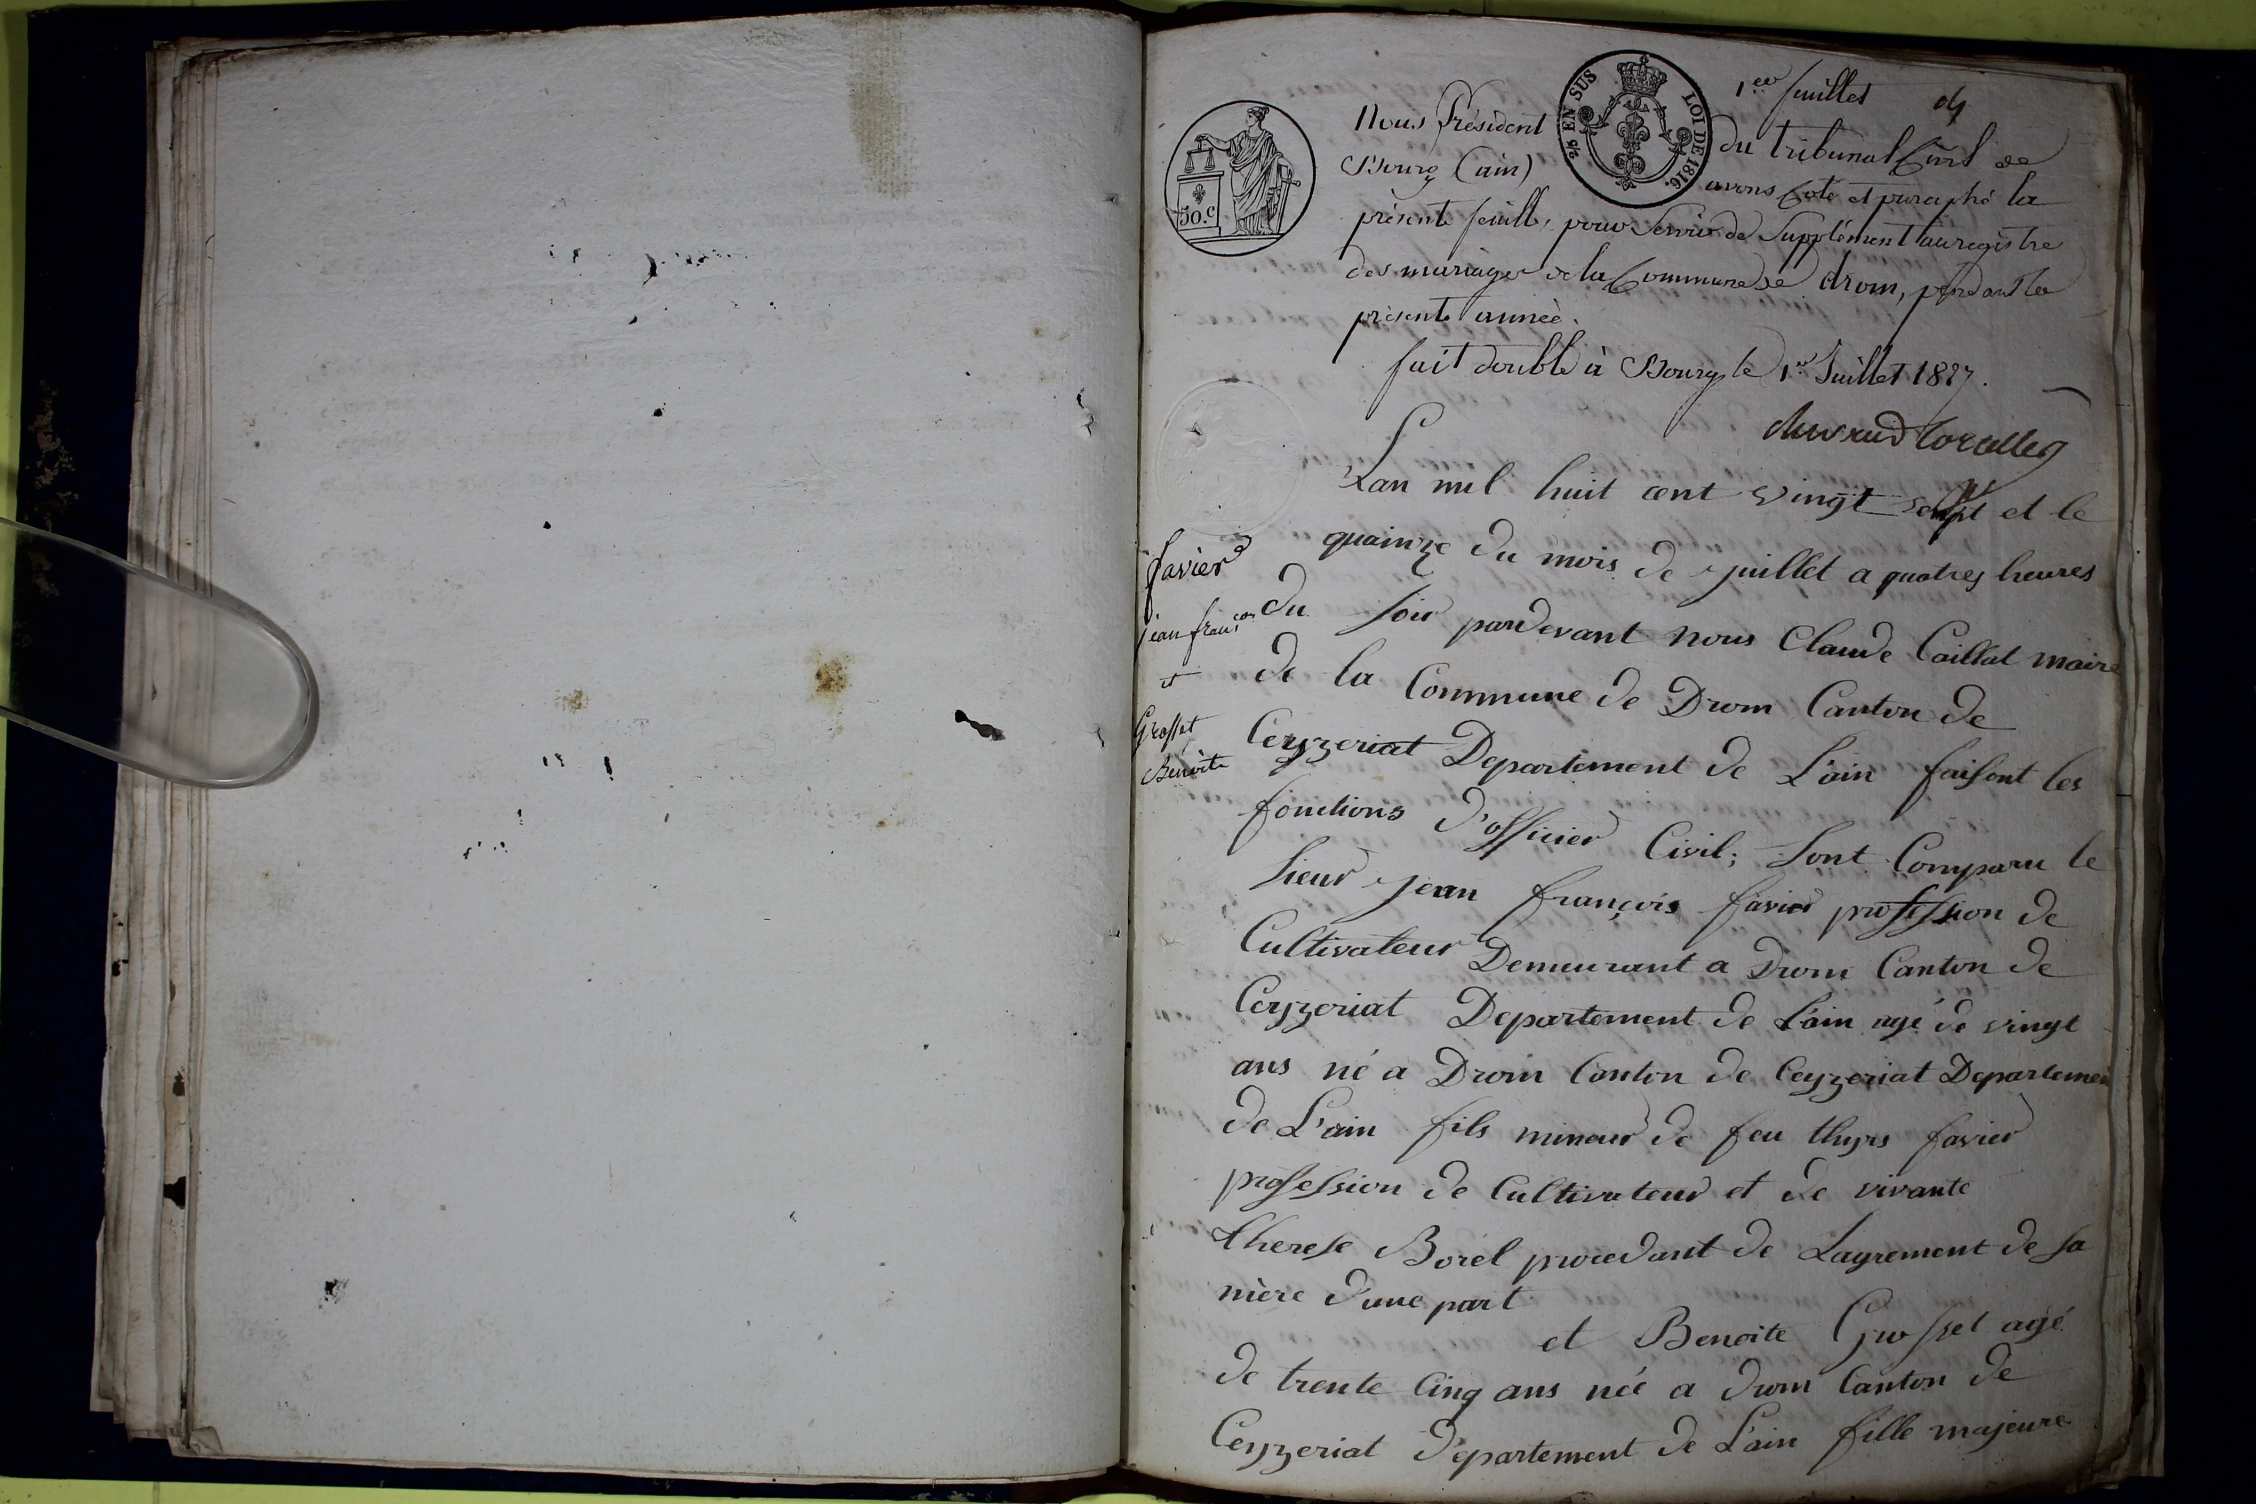 1er feuillet
Nous Président du tribunal Civil de
Bourg (ain) avons Coté et paraphé la
présente feuille, pour Servir de Supplément au registre
des mariages de la Commune de drom, pendant la
présente année.
fait double à Bourg le 1er Juillet 1827.
50.c
2/5 EN SUS LOI DE 1816.
favier
jean françois
et
Grosset
Benoite
L'an mil huit cent vingt sept et le
quainze du mois de juillet a quatres heures
du soir pardevant nous Claude Caillat maire
de la Commune de Drom Canton de
Ceyzeriat Departement de L'ain faisont les
fonctions d'officier Civil; sont Comparu le
sieur jean françois favier profession de
Cultivateur Demeurant a Drom Canton de
Ceyzeriat Departement de L'ain agé de vingt
ans né a Drom Canton de Ceyzeriat Departemen
de L'ain fils mineur de feu thyrs favier
profession de Cultivateur et de vivante
therese Borel procedant de Lagrement de sa
mère d'une part
et Benoite Grosset agé
de trente Cinq ans née a drom Canton de
Ceyzeriat departement de L'ain fille majeure